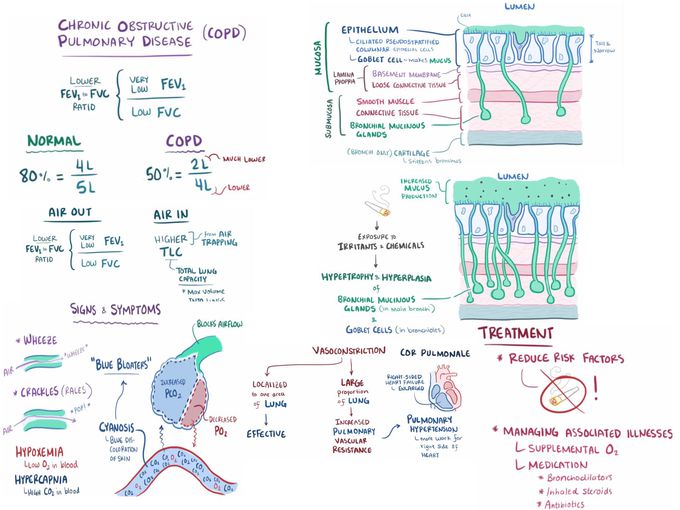 CHRONIC OBSTRUCTIVE
PULMONARY DISEASE (COPD)
LOWER
FEV₁ to FVC
RATIO
VERY
LOW FEV₁
LOW FVC
NORMAL
COPD
80% = 4L
5L
50% = 2L
4L
MUCH LOWER
LOWER
AIR OUT
LOWER
FEV₁ to FVC
RATIO
VERY
LOW FEV₁
LOW FVC
AIR IN
HIGHER
TLC
from AIR
TRAPPING
TOTAL LUNG
CAPACITY
* MAX VOLUME
SIGNS & SYMPTOMS
* WHEEZE
AIR
*WHEEZE*
* CRACKLES (RALES)
AIR
*POP!*
HYPOXEMIA
LOW O₂ in blood
HYPERCAPNIA
HIGH CO₂ in blood
"BLUE BLOATERS"
CYANOSIS
BLUE DIS-
COLORATION
OF SKIN
BLOCKS AIRFLOW
INCREASED
PCO₂
DECREASED
PO₂
CO₂ CO₂ CO₂ O₂ CO₂ CO₂
LUMEN
MUCOSA
EPITHELIUM
CILIATED PSEUDOSTRATIFIED
COLUMNAR EPITHELIAL CELLS
GOBLET CELL - makes MUCUS
LAMINA
PROPRIA
BASEMENT MEMBRANE
LOOSE CONNECTIVE TISSUE
SUBMUCOSA
SMOOTH MUSCLE
CONNECTIVE TISSUE
BRONCHIAL MUCINOUS
GLANDS
(BRONCHI ONLY) CARTILAGE
STIFFENS bronchus
TALL &
NARROW
INCREASED
MUCUS
PRODUCTION
LUMEN
EXPOSURE to
IRRITANTS & CHEMICALS
HYPERTROPHY & HYPERPLASIA
of
BRONCHIAL MUCINOUS
GLANDS (in main bronchi)
&
GOBLET CELLS (in bronchioles)
VASOCONSTRICTION
LOCALIZED
to one area
of LUNG
EFFECTIVE
LARGE
proportion
of LUNG
INCREASED
PULMONARY
VASCULAR
RESISTANCE
COR PULMONALE
RIGHT-SIDED
HEART FAILURE
ENLARGED
PULMONARY
HYPERTENSION
more work for
right side of
HEART
TREATMENT
* REDUCE RISK FACTORS
!
* MANAGING ASSOCIATED ILLNESSES
SUPPLEMENTAL O₂
MEDICATION
* Bronchodilators
* Inhaled Steroids
* Antibiotics